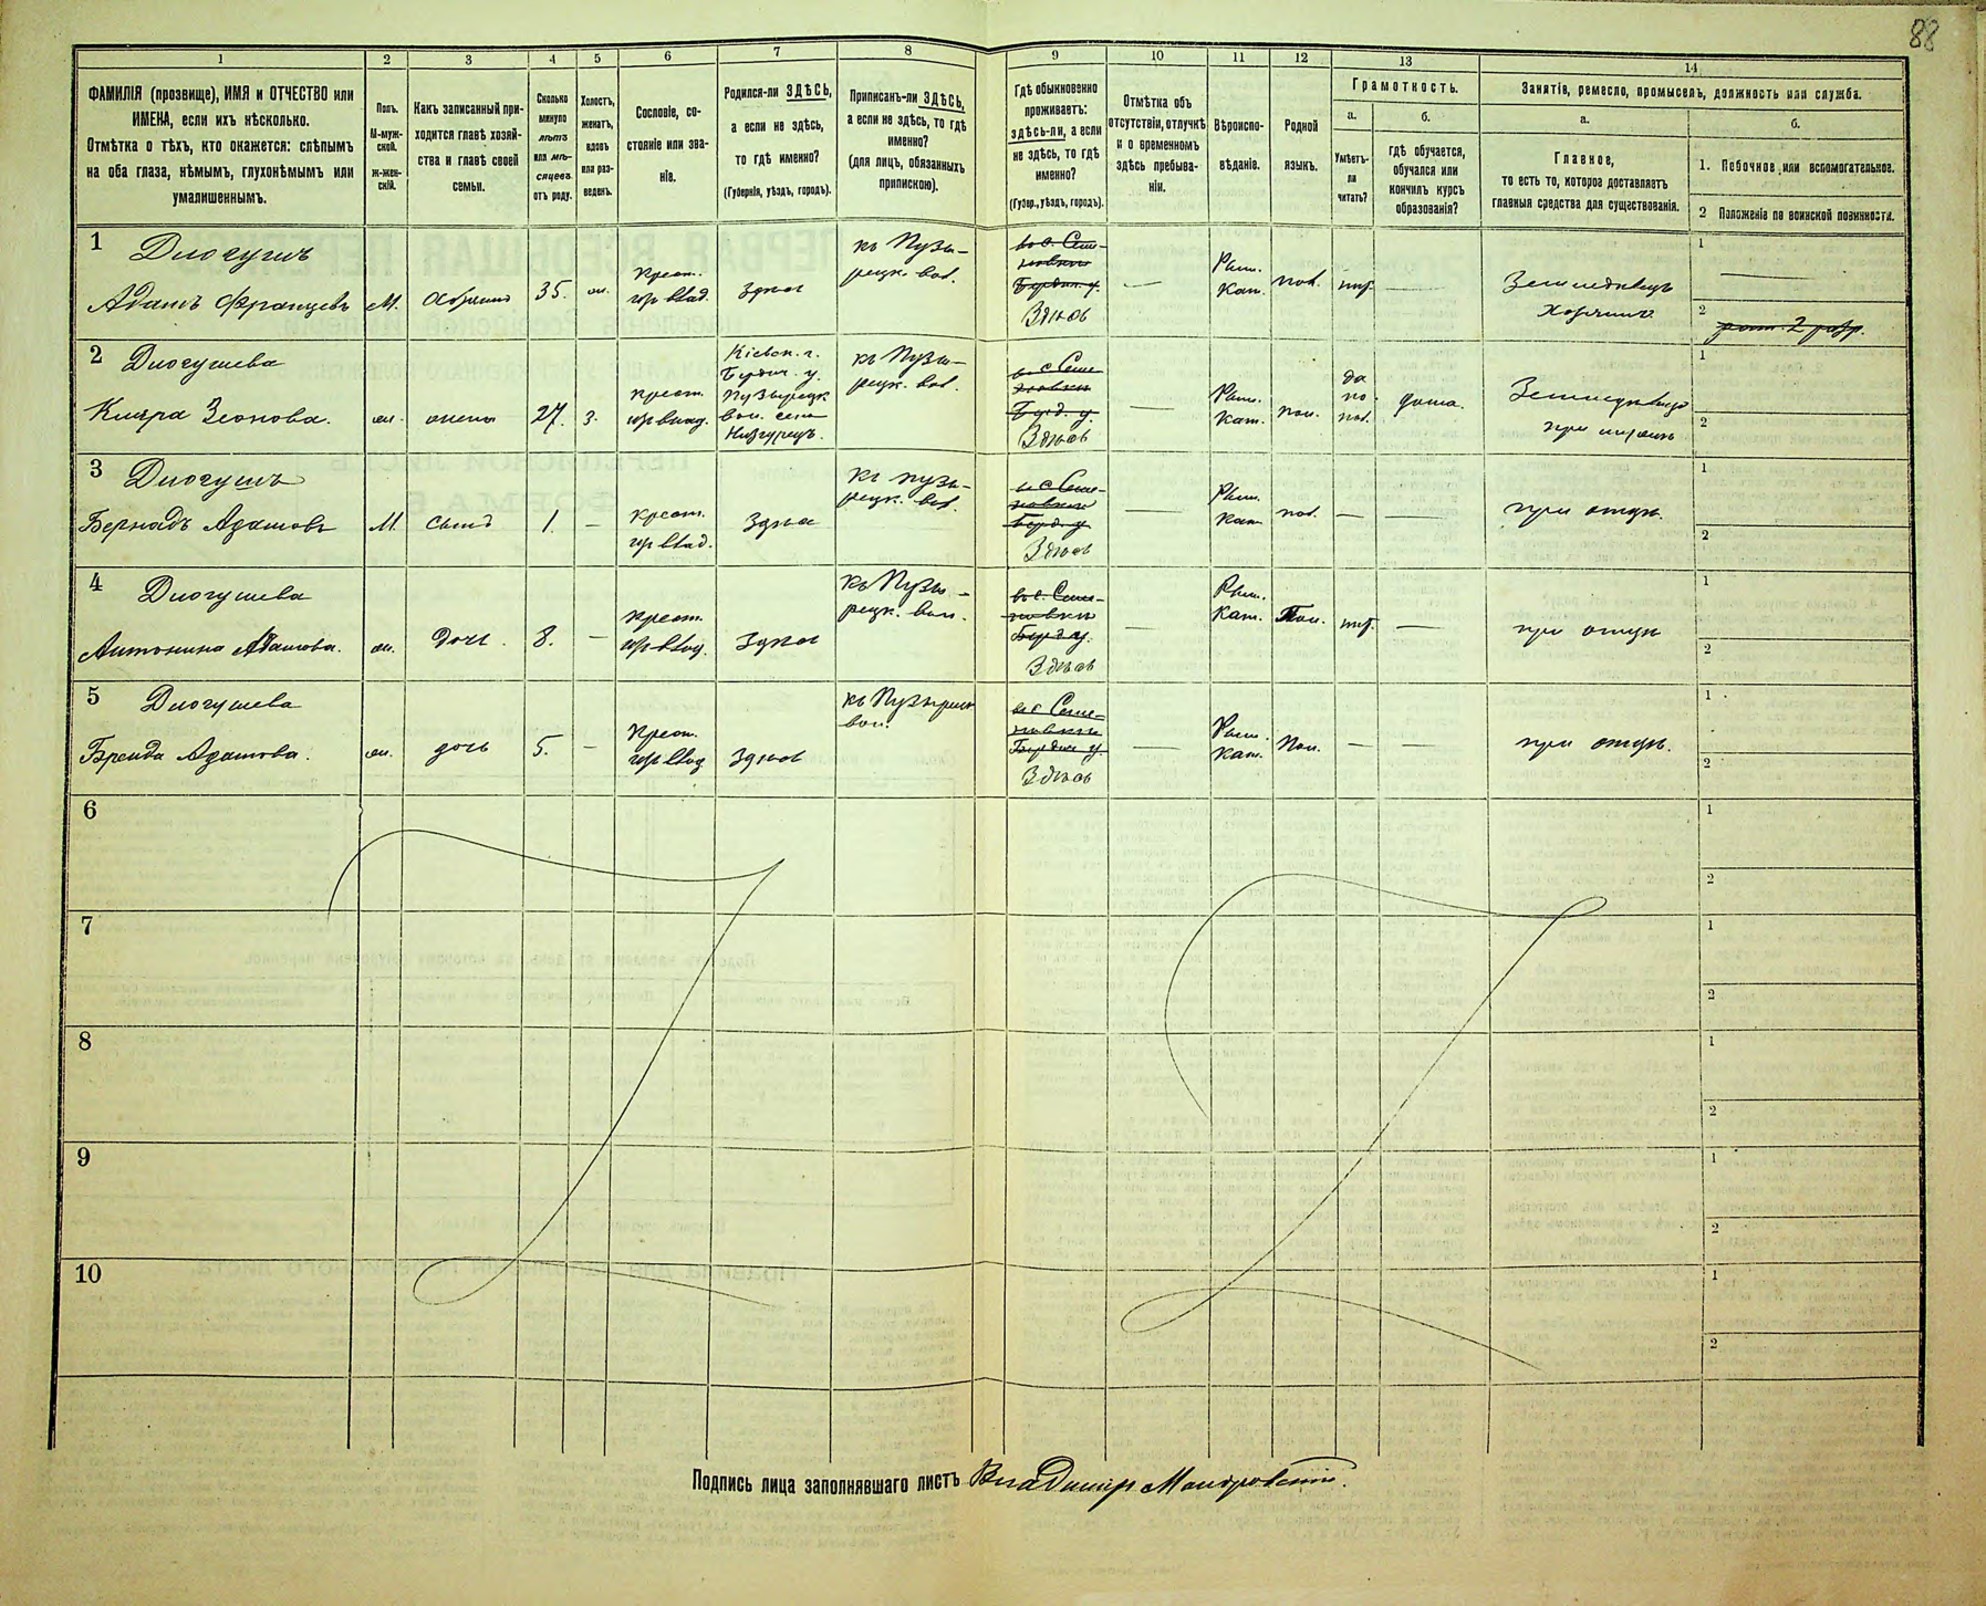 88
1 2 3 4 5 6 7 8 9 10 11 12 13 14
ФАМИЛІЯ (прозвище), ИМЯ и ОТЧЕСТВО или
ИМЕНА, если ихъ нѣсколько.
Отмѣтка о тѣхъ, кто окажется: слѣпымъ
на оба глаза, нѣмымъ, глухонѣмымъ или
умалишеннымъ.
Полъ.
М-муж-
ской.
ж-жен-
скій.
Какъ записанный при-
ходится главѣ хозяй-
ства и главѣ своей
семьи.
Сколько
минуло
лѣтъ
или мѣ-
сяцевъ
отъ роду.
Холостъ,
женатъ,
вдовъ
или раз-
веденъ.
Сословіе, со-
стояніе или зва-
ніе.
Родился-ли ЗДѢСЬ,
а если не здѣсь,
то гдѣ именно?
(Губернія, уѣздъ, городъ).
Приписанъ-ли ЗДѢСЬ,
а если не здѣсь, то гдѣ
именно?
(для лицъ, обязанныхъ
припискою).
Гдѣ обыкновенно
проживаетъ:
здѣсь-ли, а если
не здѣсь, то гдѣ
именно?
(Губер., уѣздъ, городъ).
Отмѣтка объ
отсутствіи, отлучкѣ
и о временномъ
здѣсь пребыва-
ніи.
Вѣроиспо-
вѣданіе.
Родной
языкъ.
Грамотность.
а.
Умѣетъ-
ли
читать?
б.
гдѣ обучается,
обучался или
кончилъ курсъ
образованія?
Занятіе, ремесло, промыселъ, должность или служба.
а.
Главное,
то есть то, которое доставляетъ
главныя средства для существованія.
б.
1. Побочное или вспомогательное.
2 Положеніе по воинской повинности.
1 Длогушъ
Адамъ Францевъ
М.
35.
крест.
здѣсь
къ Пузы-
рецк. вол.
во с. Семе-
новки
Бердич. у.
Здѣсь
—
Рим.
Кат.
пол.
—
Земледѣлецъ
Хозяинъ
1
2
2 Длогушева
Клара Зенонова.
жена
27.
з.
крест.
Кіевск. г.
Бердич. у.
Пузырецк
вол. село
Низгурецъ.
къ Пузы-
рецк. вол.
Берд. у.
Здѣсь
—
Рим.
Кат.
пол.
да
по
пол.
дома.
при мужѣ
1
2
3 Длогушъ
Бернадъ Адамовъ
М.
сынъ
1.
—
крест.
здѣсь
къ Пузы-
рецк. вол.
Здѣсь
—
Рим.
Кат
пол.
—
—
при отцѣ.
1
2
4 Длогушева
Антонина Адамова.
дочь.
8.
—
крест.
здѣсь
къ Пузы-
рецк. вол.
Бердич. у.
Здѣсь
—
Рим.
Кат.
Пол.
—
при отцѣ
1
2
5 Длогушева
Бренда Адамова.
дочь
5.
—
крест.
здѣсь
вол.
Бердич. у.
Здѣсь
—
Рим.
Кат.
Пол.
—
—
при отцѣ.
1
2
6 1
2
7 1
2
8 1
2
9 1
2
10 1
2
Подпись лица заполнявшаго листъ Владимір